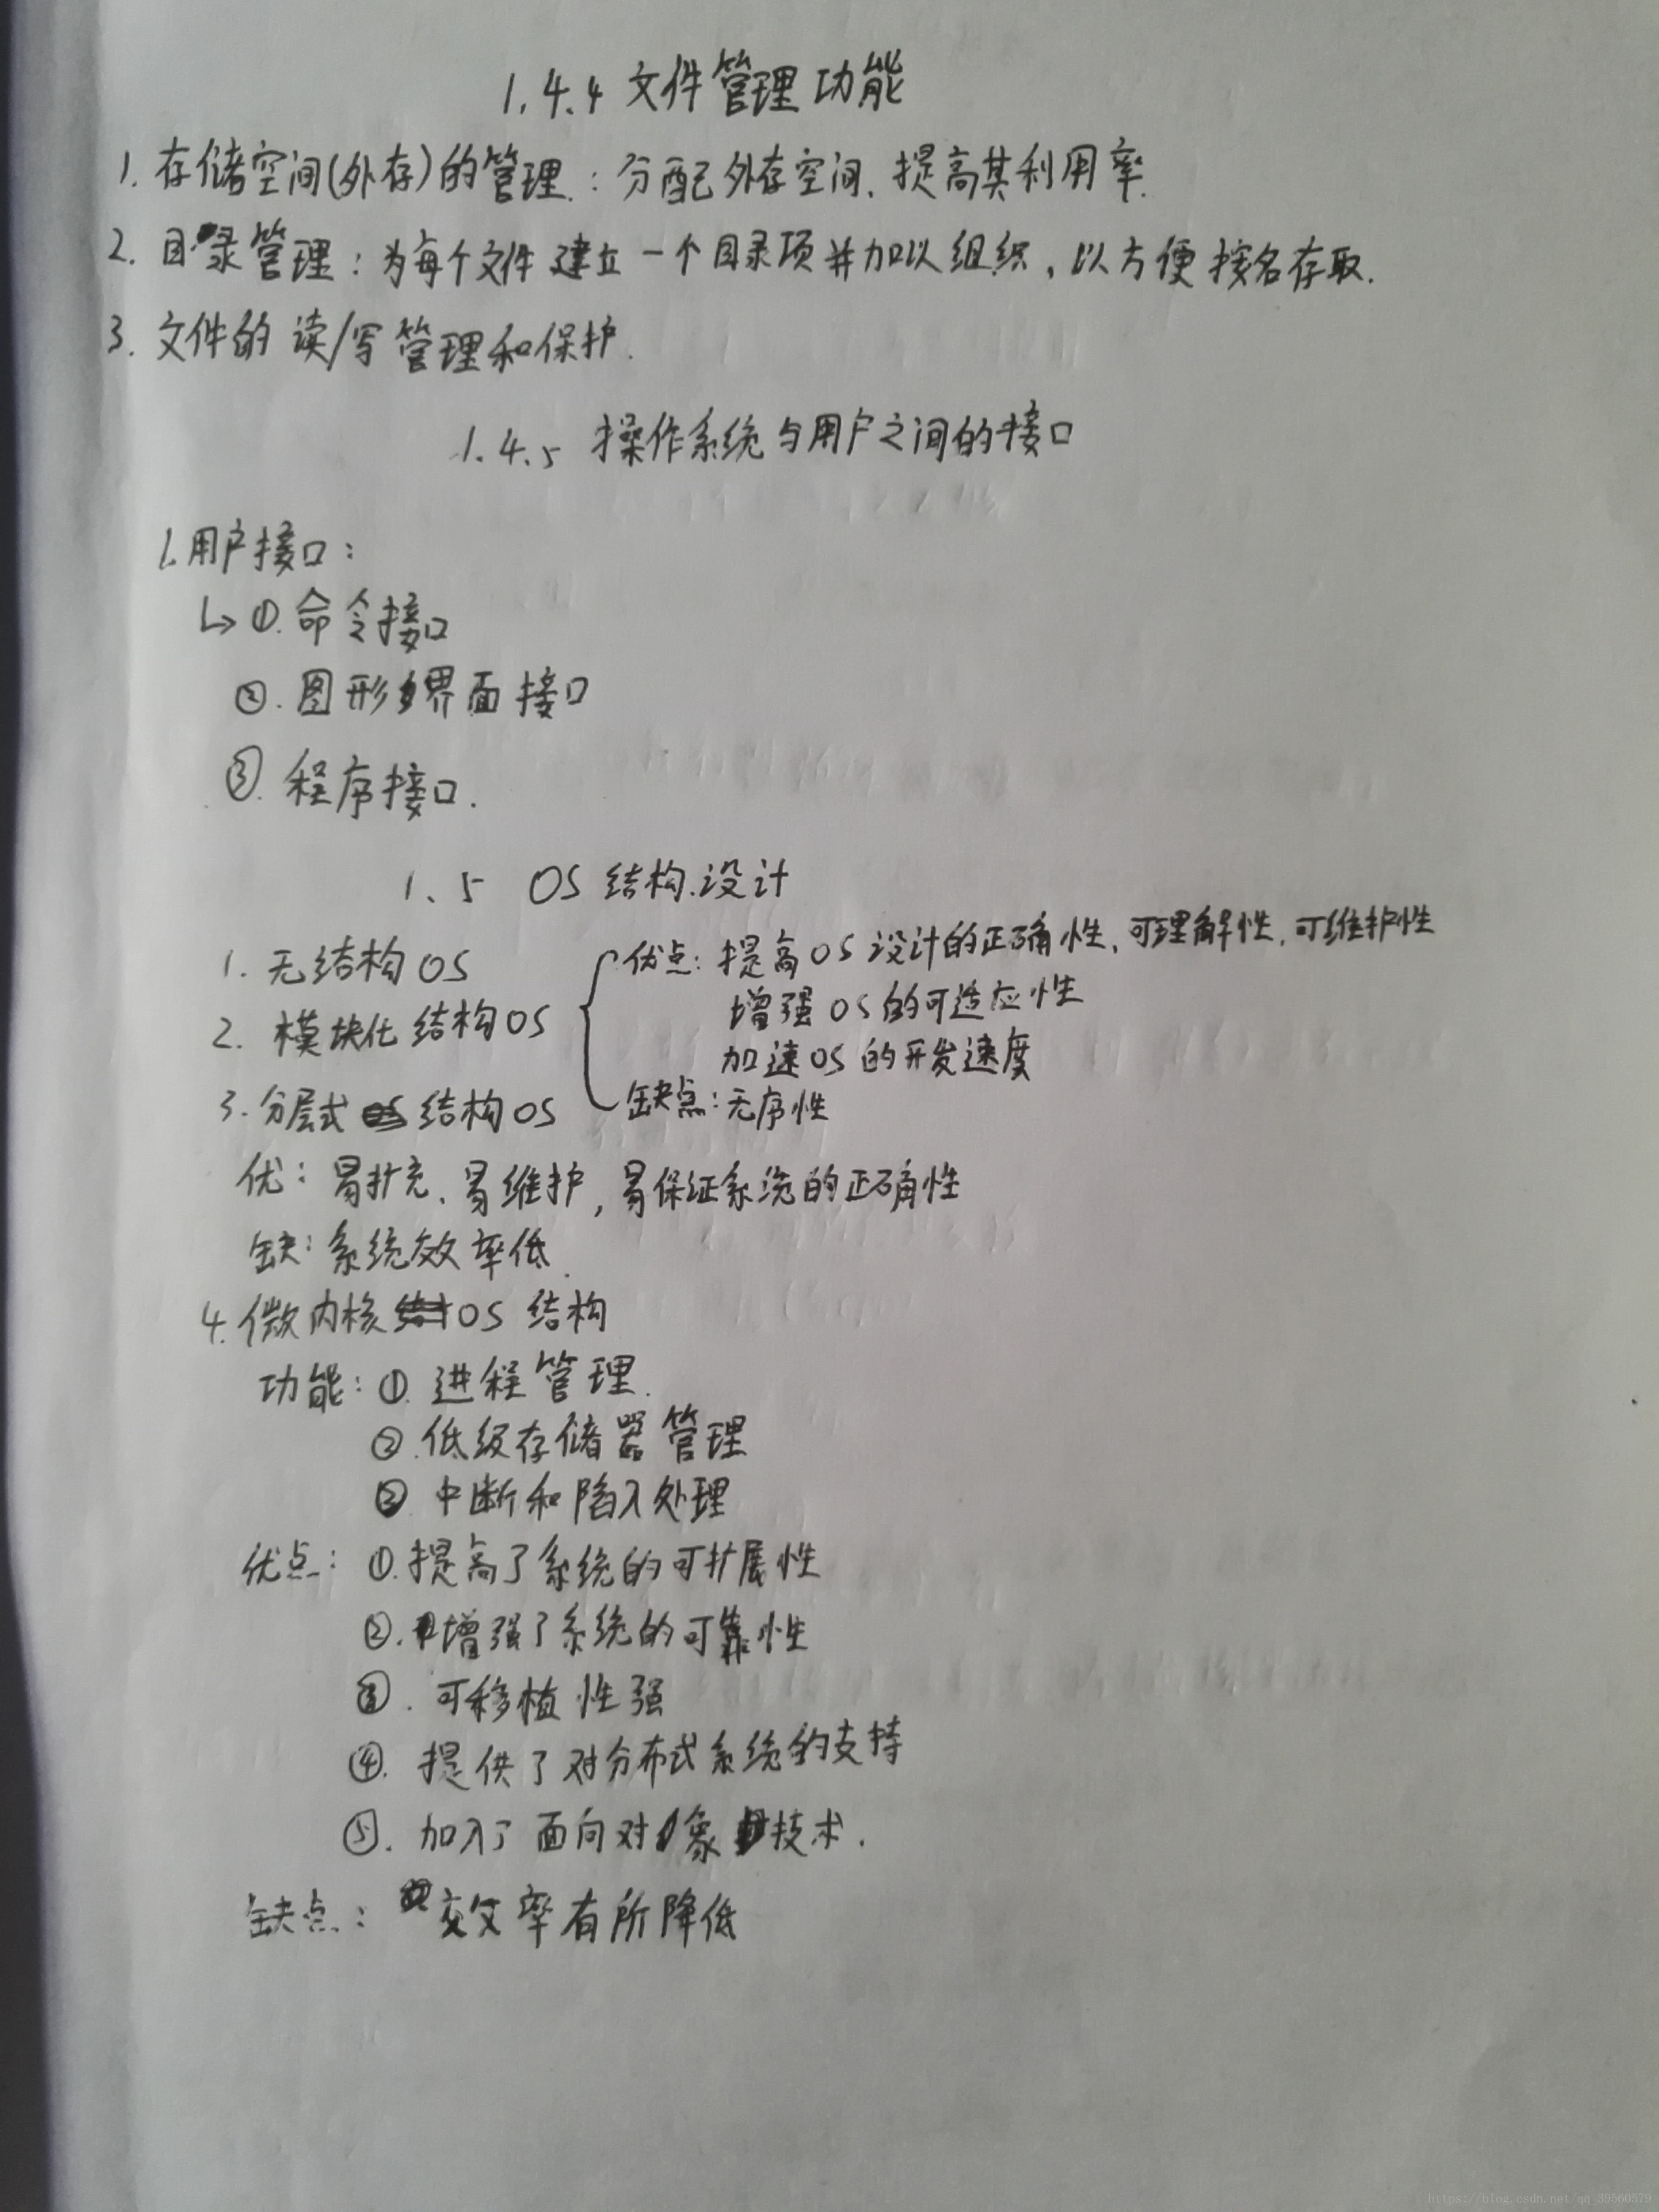 1.4.4 文件管理功能
1. 存储空间(外存)的管理:分配外存空间、提高其利用率.
2. 目录管理:为每个文件建立一个目录项并加以组织,以方便按名存取.
3. 文件的读/写管理和保护.
1.4.5 操作系统与用户之间的接口
1.用户接口:
↳ ①.命令接口
②.图形界面接口
③.程序接口.
1.5 OS结构设计
1. 无结构OS
2. 模块化结构OS
优点:提高OS设计的正确性,可理解性,可维护性
增强OS的可适应性
加速OS的开发速度
缺点:无序性
3.分层式结构OS
优:易扩充、易维护,易保证系统的正确性
缺:系统效率低.
4.微内核OS结构
功能:①.进程管理.
②.低级存储器管理
③ 中断和陷入处理
优点:①.提高了系统的可扩展性
②.增强了系统的可靠性
③.可移植性强
④.提供了对分布式系统的支持
⑤.加入了面向对象技术.
缺点:效率有所降低
https://blog.csdn.net/qq_39560579